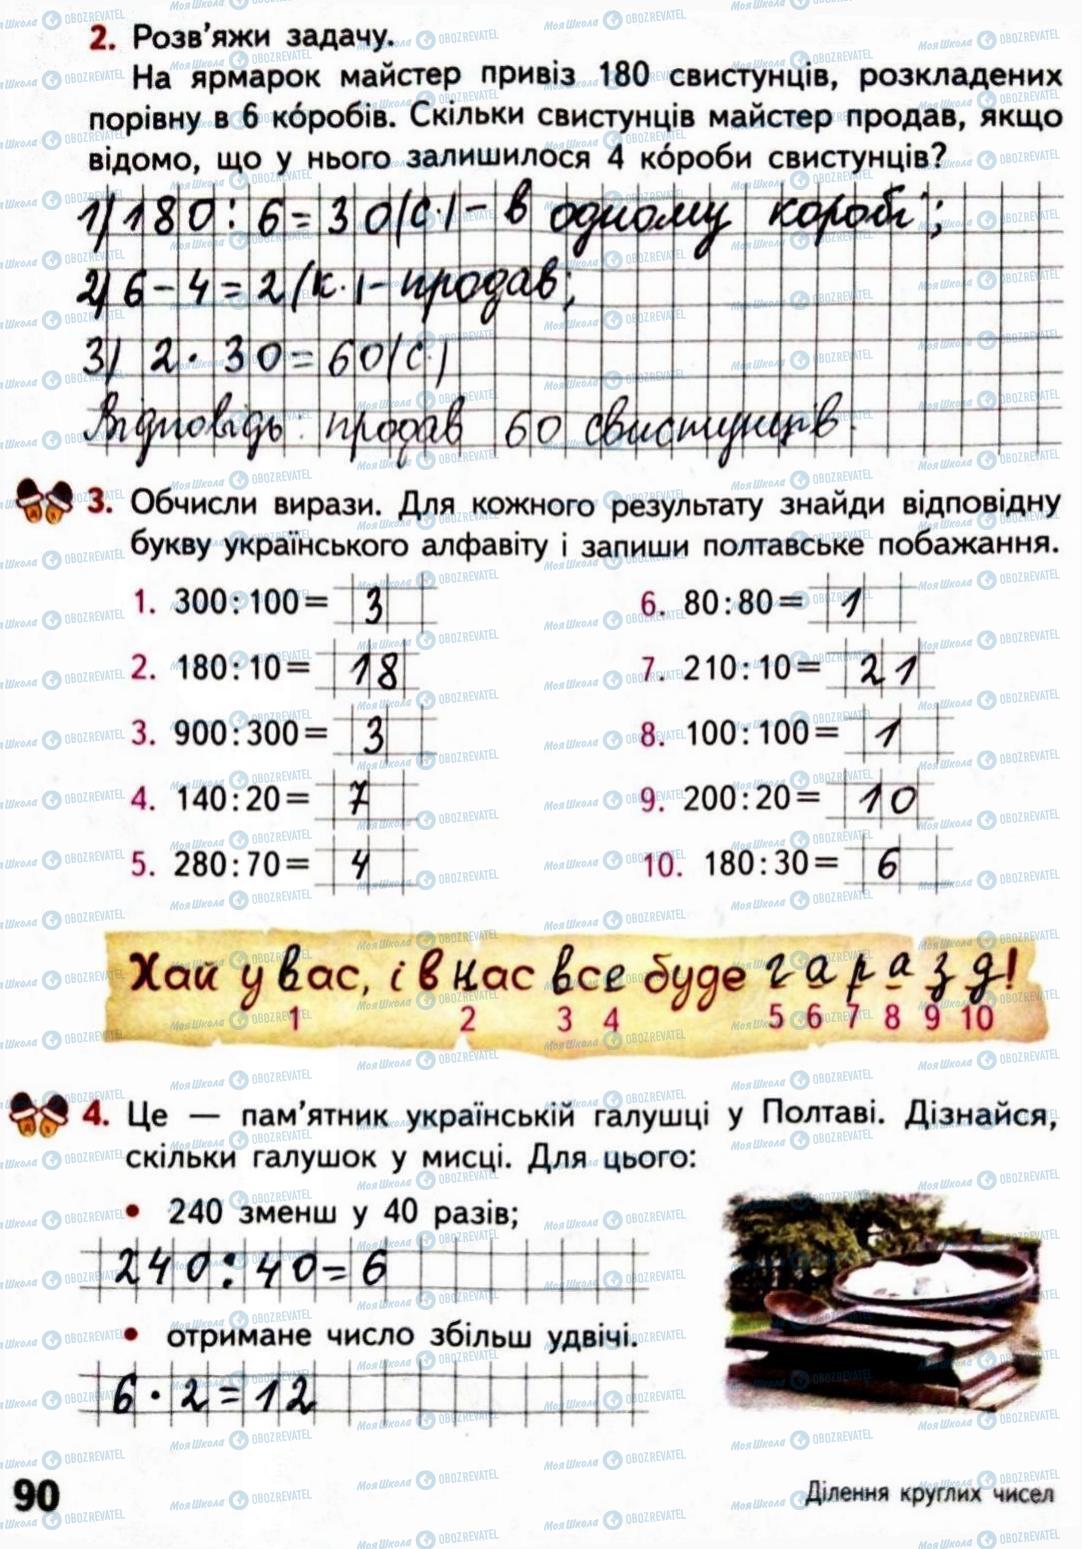 2. Розв'яжи задачу.
На ярмарок майстер привіз 180 свистунців, розкладених
порівну в 6 ко́робів. Скільки свистунців майстер продав, якщо
відомо, що у нього залишилося 4 ко́роби свистунців?
1) 180 : 6 = 30 (с.) - в одному коробі;
2) 6 - 4 = 2 (к.) - продав;
3) 2 · 30 = 60 (с.)
Відповідь: продав 60 свистунців.
3. Обчисли вирази. Для кожного результату знайди відповідну
букву українського алфавіту і запиши полтавське побажання.
1. 300 : 100 = 3
6. 80 : 80 = 1
2. 180 : 10 = 18
7. 210 : 10 = 21
3. 900 : 300 = 3
8. 100 : 100 = 1
4. 140 : 20 = 7
9. 200 : 20 = 10
5. 280 : 70 = 4
10. 180 : 30 = 6
Хай у вас, і в нас все буде гаразд!
1 2 3 4 5 6 7 8 9 10
4. Це — пам'ятник українській галушці у Полтаві. Дізнайся,
скільки галушок у мисці. Для цього:
• 240 зменш у 40 разів;
240 : 40 = 6
• отримане число збільш удвічі.
6 · 2 = 12
90
Ділення круглих чисел
МояШкола OBOZREVATEL